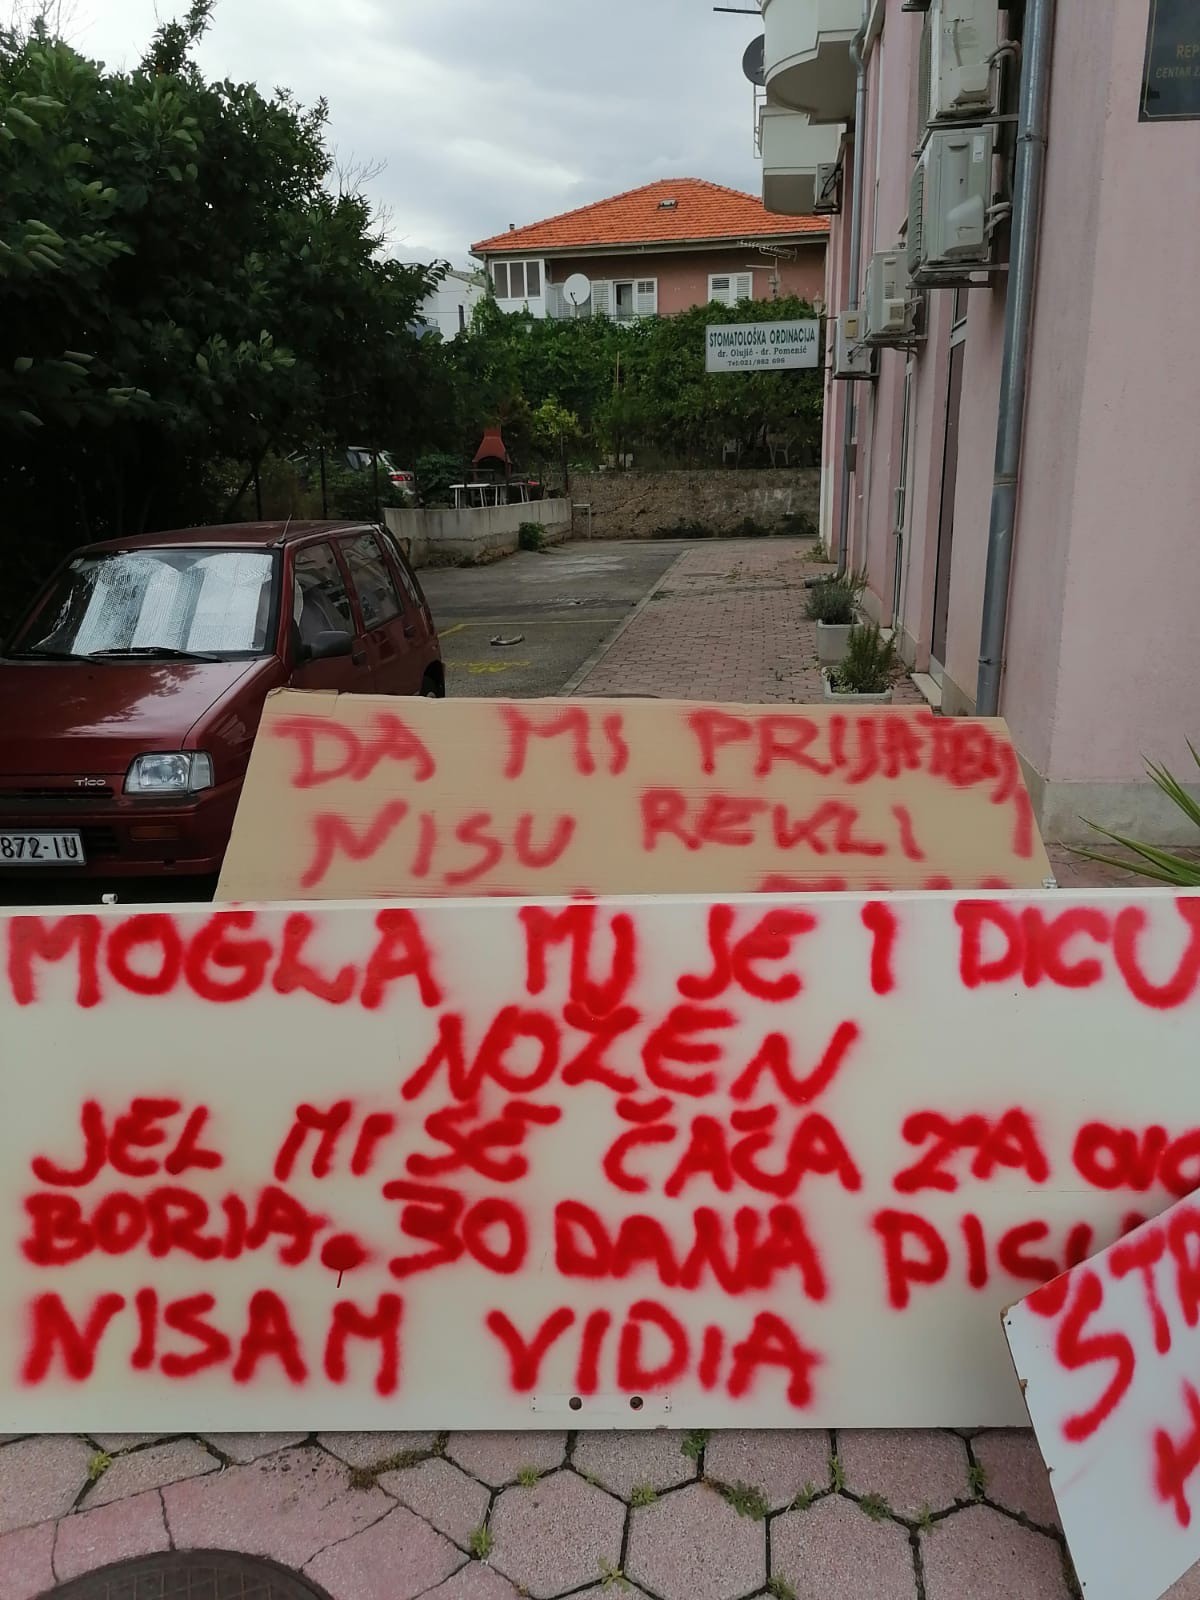 REP
CENTAR Z
STOMATOLOŠKA ORDINACIJA
dr. Olujić - dr. Pomenić
Tel:021/882 696
TICO
872-IU
DA MI PRIJATELJI
NISU REKLI
MOGLA MU JE I DICU
NOŽEN
JEL MI SE ČAČA ZA OVO
BORIA. 30 DANA DICU
NISAM VIDIA